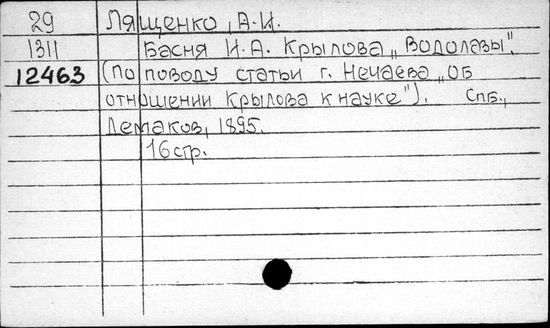 29 Лященко, А.И.
1311 Басня И.А. Крылова „Водолазы".
12463 (По поводу статьи г. Нечаева „Об
отношении Крылова к науке"). Спб.,
Лемаков, 1895.
16 стр.